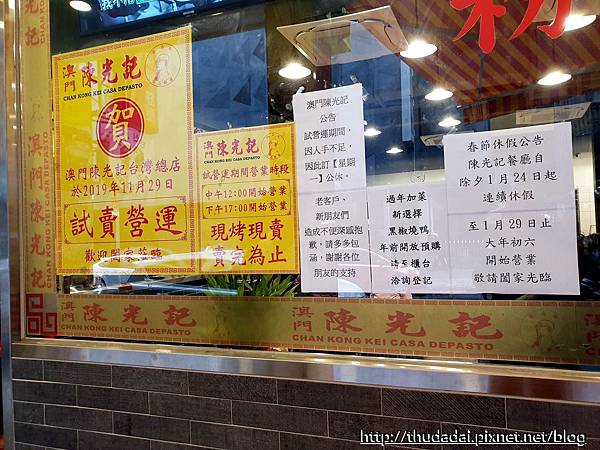 澳門 陳光記
CHAN KONG KEI CASA DEPASTO
賀
澳門陳光記台灣總店
於2019年11月29日
試賣營運
歡迎闔家蒞臨
澳門 陳光記
CHAN KONG KEI CASA DEPASTO
試營運期間營業時段
中午12:00開始營業
下午17:00開始營業
現烤現賣
賣完為止
澳門陳光記
公告
試營運期間，
因人手不足，
因此訂【星期
一】公休。
老客戶、
新朋友們
造成不便深感抱
歉，請多多包
涵，謝謝各位
朋友的支持
過年加菜
新選擇
黑椒燒鴨
年前開放預購
請至櫃台
洽詢登記
春節休假公告
陳光記餐廳自
除夕1月24日起
連續休假
至1月29日止
大年初六
開始營業
敬請闔家光臨
澳門 陳光記
CHAN KONG KEI CASA DEPASTO
澳門 陳光記
CHAN KONG KEI CASA DEPASTO
澳門陳光記
http://thudadai.pixnet.net/blog